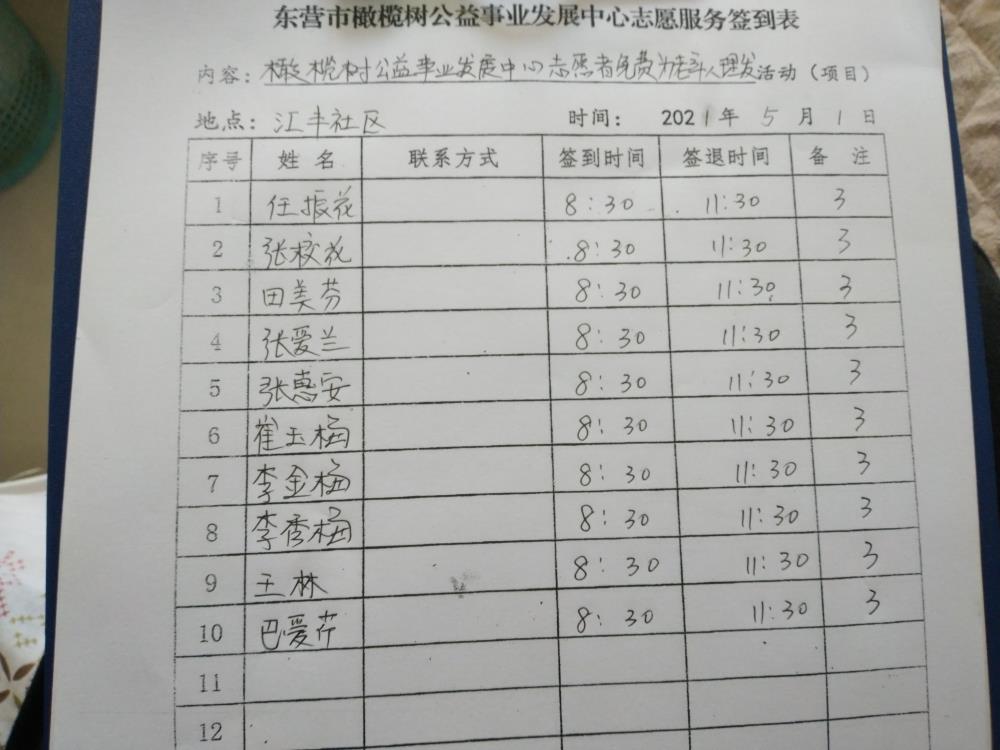 东营市橄榄树公益事业发展中心志愿服务签到表
内容：橄榄树公益事业发展中心志愿者免费为老年人理发活动（项目）
地点：汇丰社区 时间： 2021年 5 月 1 日
序号 姓名 联系方式 签到时间 签退时间 备 注
1 任振花 8:30 11:30 3
2 张校花 8:30 11:30 3
3 田美芬 8:30 11:30 3
4 张爱兰 8:30 11:30 3
5 张惠安 8:30 11:30 3
6 崔玉梅 8:30 11:30 3
7 李金梅 8:30 11:30 3
8 李秀梅 8:30 11:30 3
9 王林 8:30 11:30 3
10 巴爱芹 8:30 11:30 3
11
12